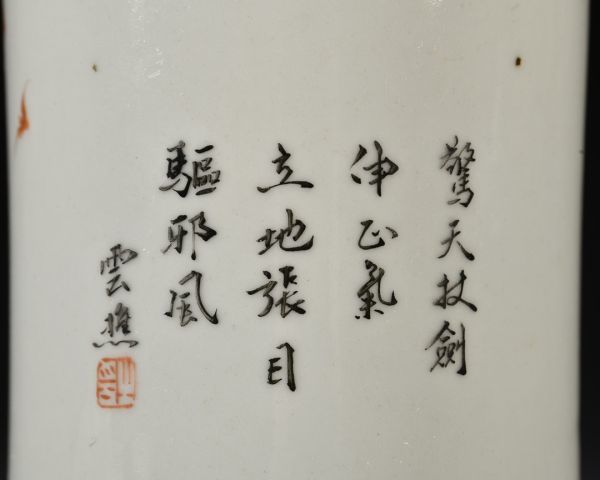 驚天杖劍
伸正氣
立地張目
驅邪風
雲樵